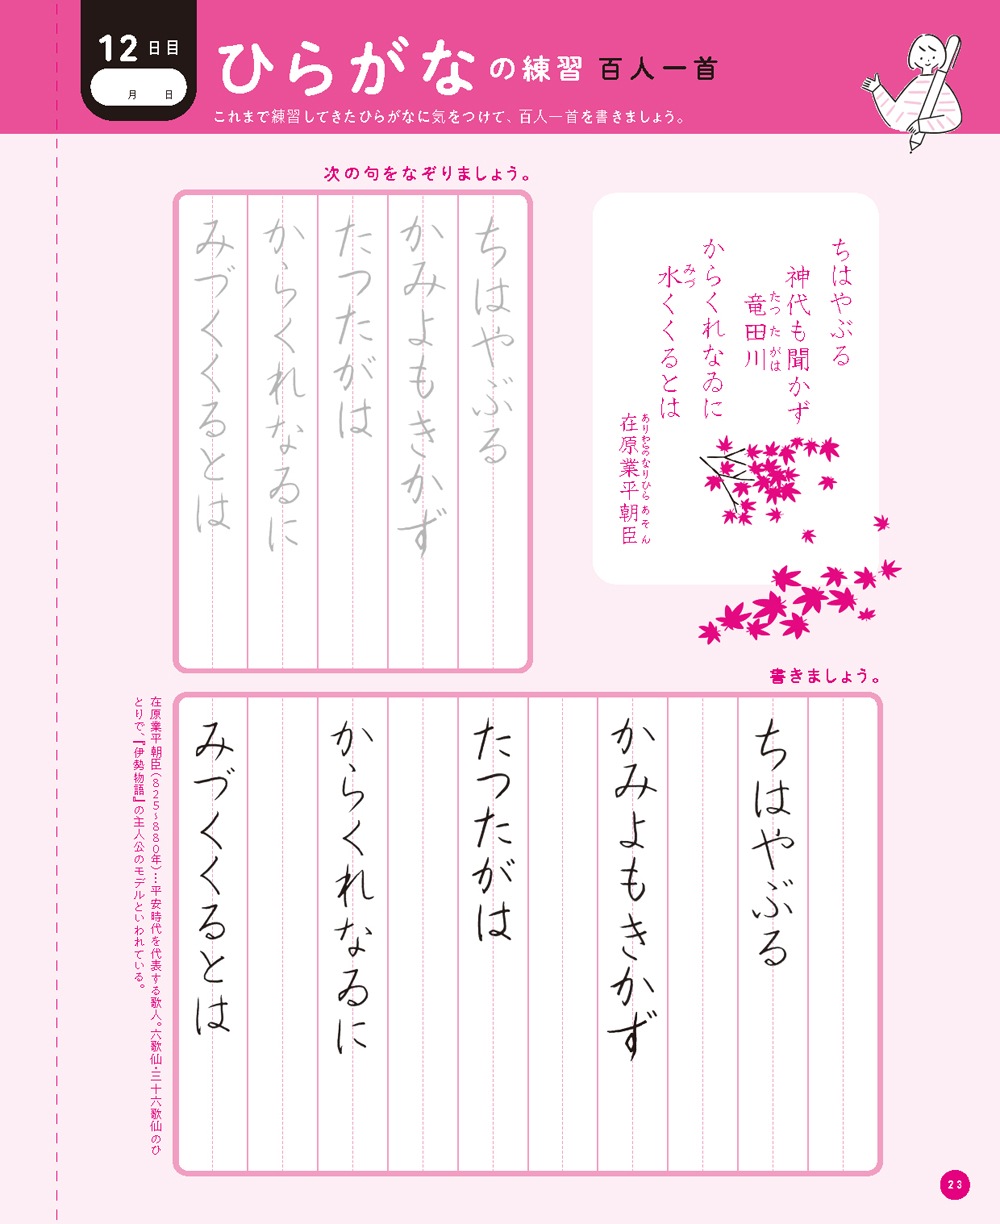 12日目
月 日
ひらがなの練習 百人一首
これまで練習してきたひらがなに気をつけて、百人一首を書きましょう。
ちはやぶる
神代も聞かず
竜田川
たつたがは
からくれなゐに
水くくるとは
みづ
在原業平朝臣
ありわらのなりひらあそん
次の句をなぞりましょう。
ちはやぶる
かみよもきかず
たつたがは
からくれなゐに
みづくくるとは
書きましょう。
ちはやぶる
かみよもきかず
たつたがは
からくれなゐに
みづくくるとは
在原業平朝臣(825〜880年)…平安時代を代表する歌人。六歌仙・三十六歌仙のひ
とりで、『伊勢物語』の主人公のモデルといわれている。
23